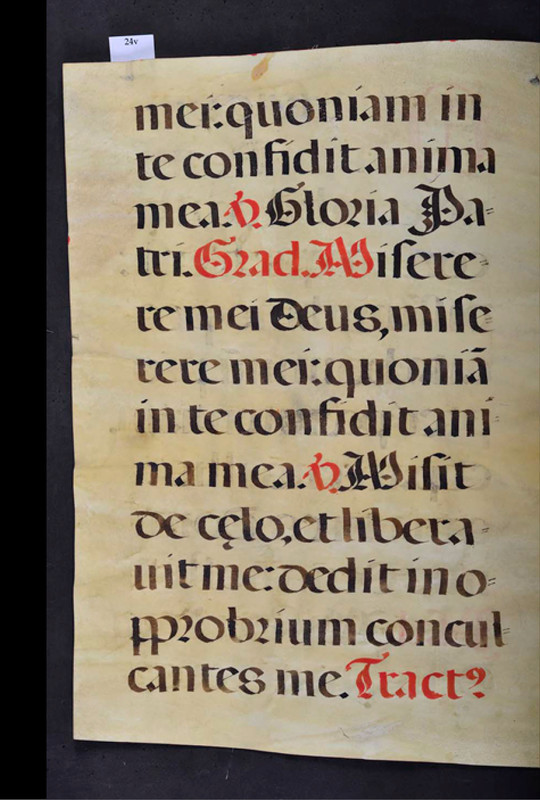 24v
mei: quoniam in
te confidit anima
mea. ℣. Gloria Pa=
tri. Grad. Misere=
re mei Deus, mise=
rere mei: quoniã
in te confidit ani=
ma mea. ℣. Misit
de cęlo, et libera=
uit me: dedit in o=
pprobrium concul=
cantes me. Tract9